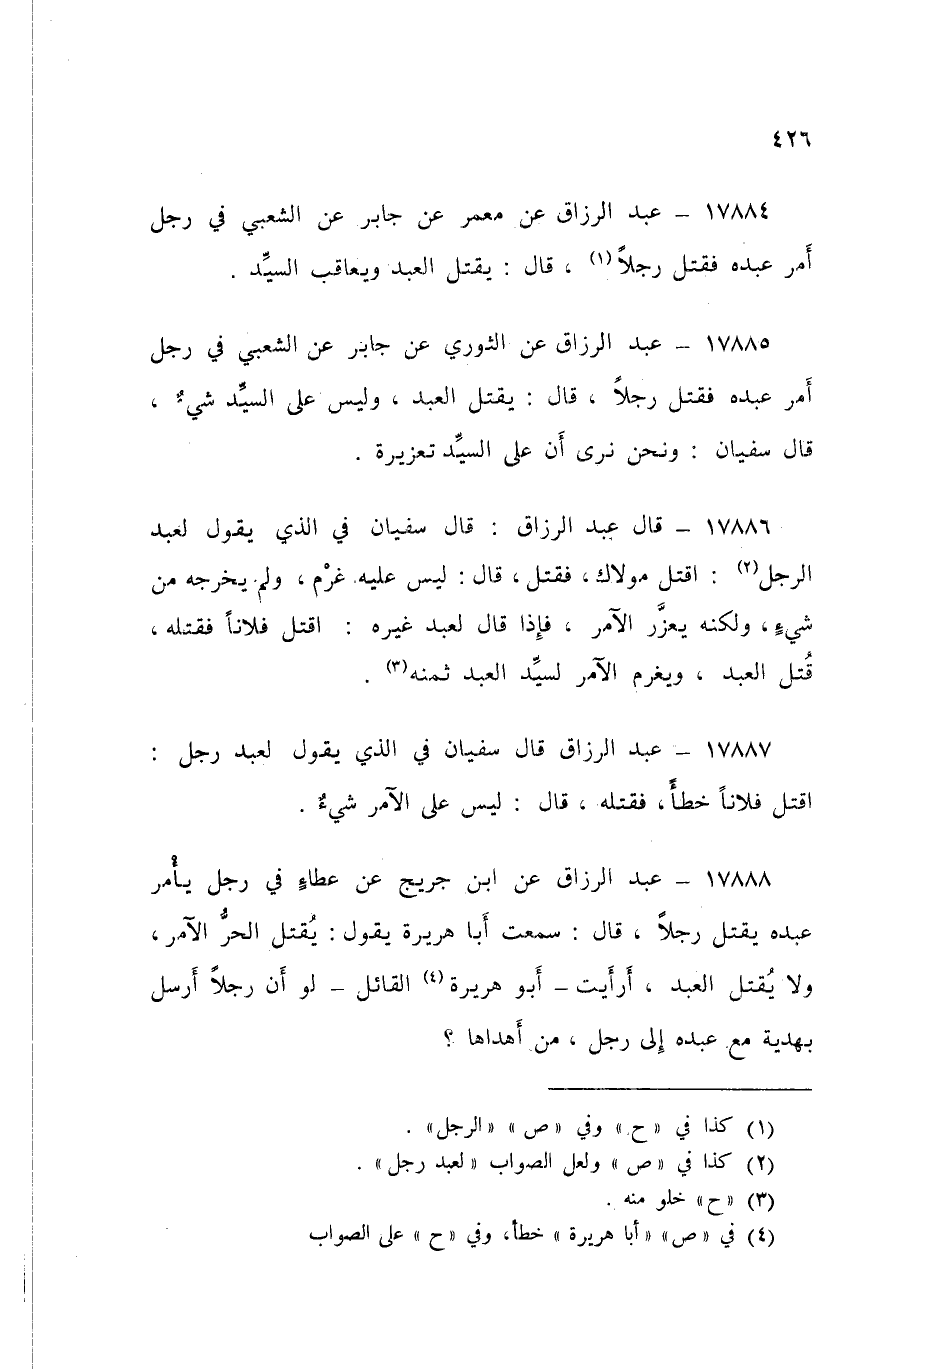 ٤٢٦
١٧٨٨٤ – عبد الرزاق عن معمر عن جابر عن الشعبي في رجل
أَمر عبده فقتل رجلاً(١) ، قال : يقتل العبد ويعاقب السيِّد .
١٧٨٨٥ – عبد الرزاق عن الثوري عن جابر عن الشعبي في رجل
أَمر عبده فقتل رجلاً ، قال : يقتل العبد ، وليس على السيِّد شيءٌ ،
قال سفيان : ونحن نرى أَن على السيِّد تعزيرة .
١٧٨٨٦ – قال عبد الرزاق : قال سفيان في الذي يقول لعبد
الرجل(٢) : اقتل مولاك ، فقتل ، قال : ليس عليه غرْم ، ولم يخرجه من
شيءٍ ، ولكنه يعزَّر الآمر ، فإِذا قال لعبد غيره : اقتل فلاناً فقتله ،
قُتل العبد ، ويغرم الآمر لسيِّد العبد ثمنه(٣) .
١٧٨٨٧ – عبد الرزاق قال سفيان في الذي يقول لعبد رجل :
اقتل فلاناً خطأً ، فقتله ، قال : ليس على الآمر شيءٌ .
١٧٨٨٨ – عبد الرزاق عن ابن جريج عن عطاءٍ في رجل يأْمر
عبده يقتل رجلاً ، قال : سمعت أَبا هريرة يقول : يُقتل الحرُّ الآمر ،
ولا يُقتل العبد ، أَرأَيت – أَبو هريرة(٤) القائل – لو أَن رجلاً أَرسل
بهدية مع عبده إِلى رجل ، من أَهداها ؟
(١) كذا في « ح » وفي « ص » « الرجل » .
(٢) كذا في « ص » ولعل الصواب « لعبد رجل » .
(٣) « ح » خلو منه .
(٤) في « ص » « أبا هريرة » خطأ، وفي « ح » على الصواب